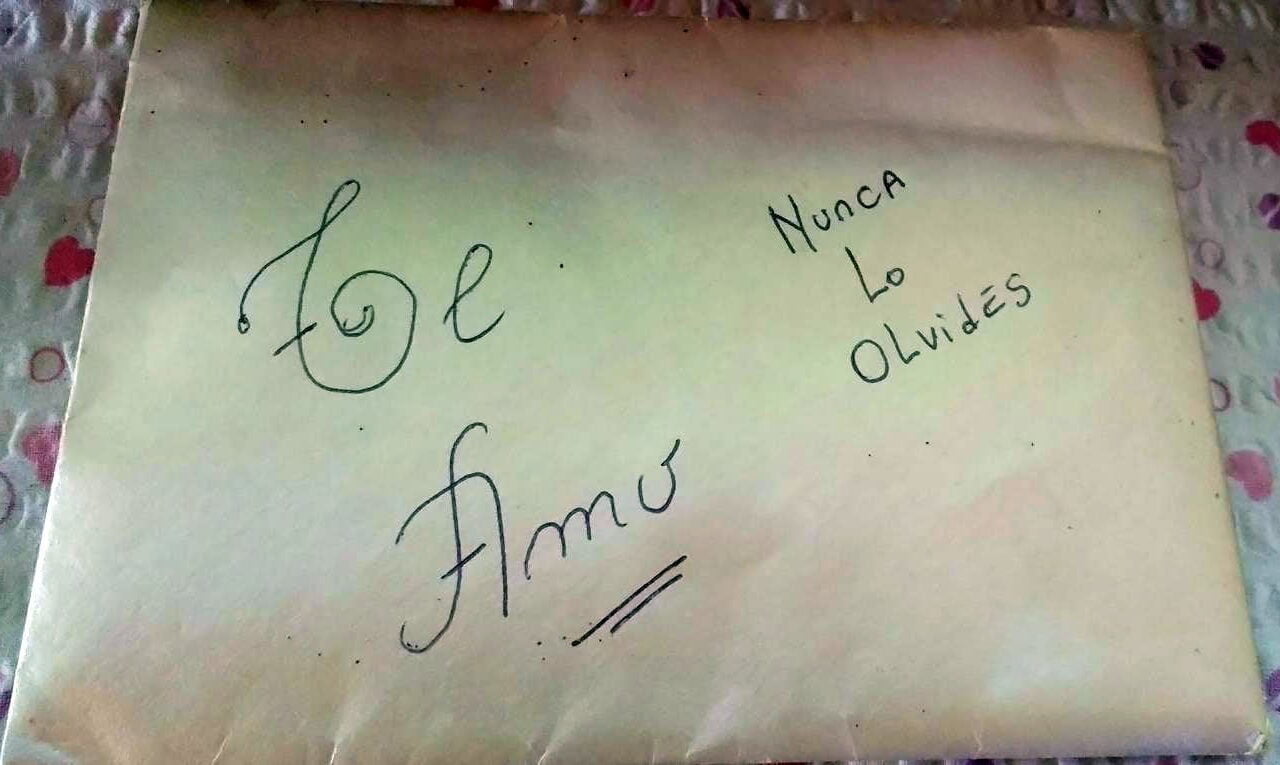 Te
Amo
Nunca
Lo
Olvides